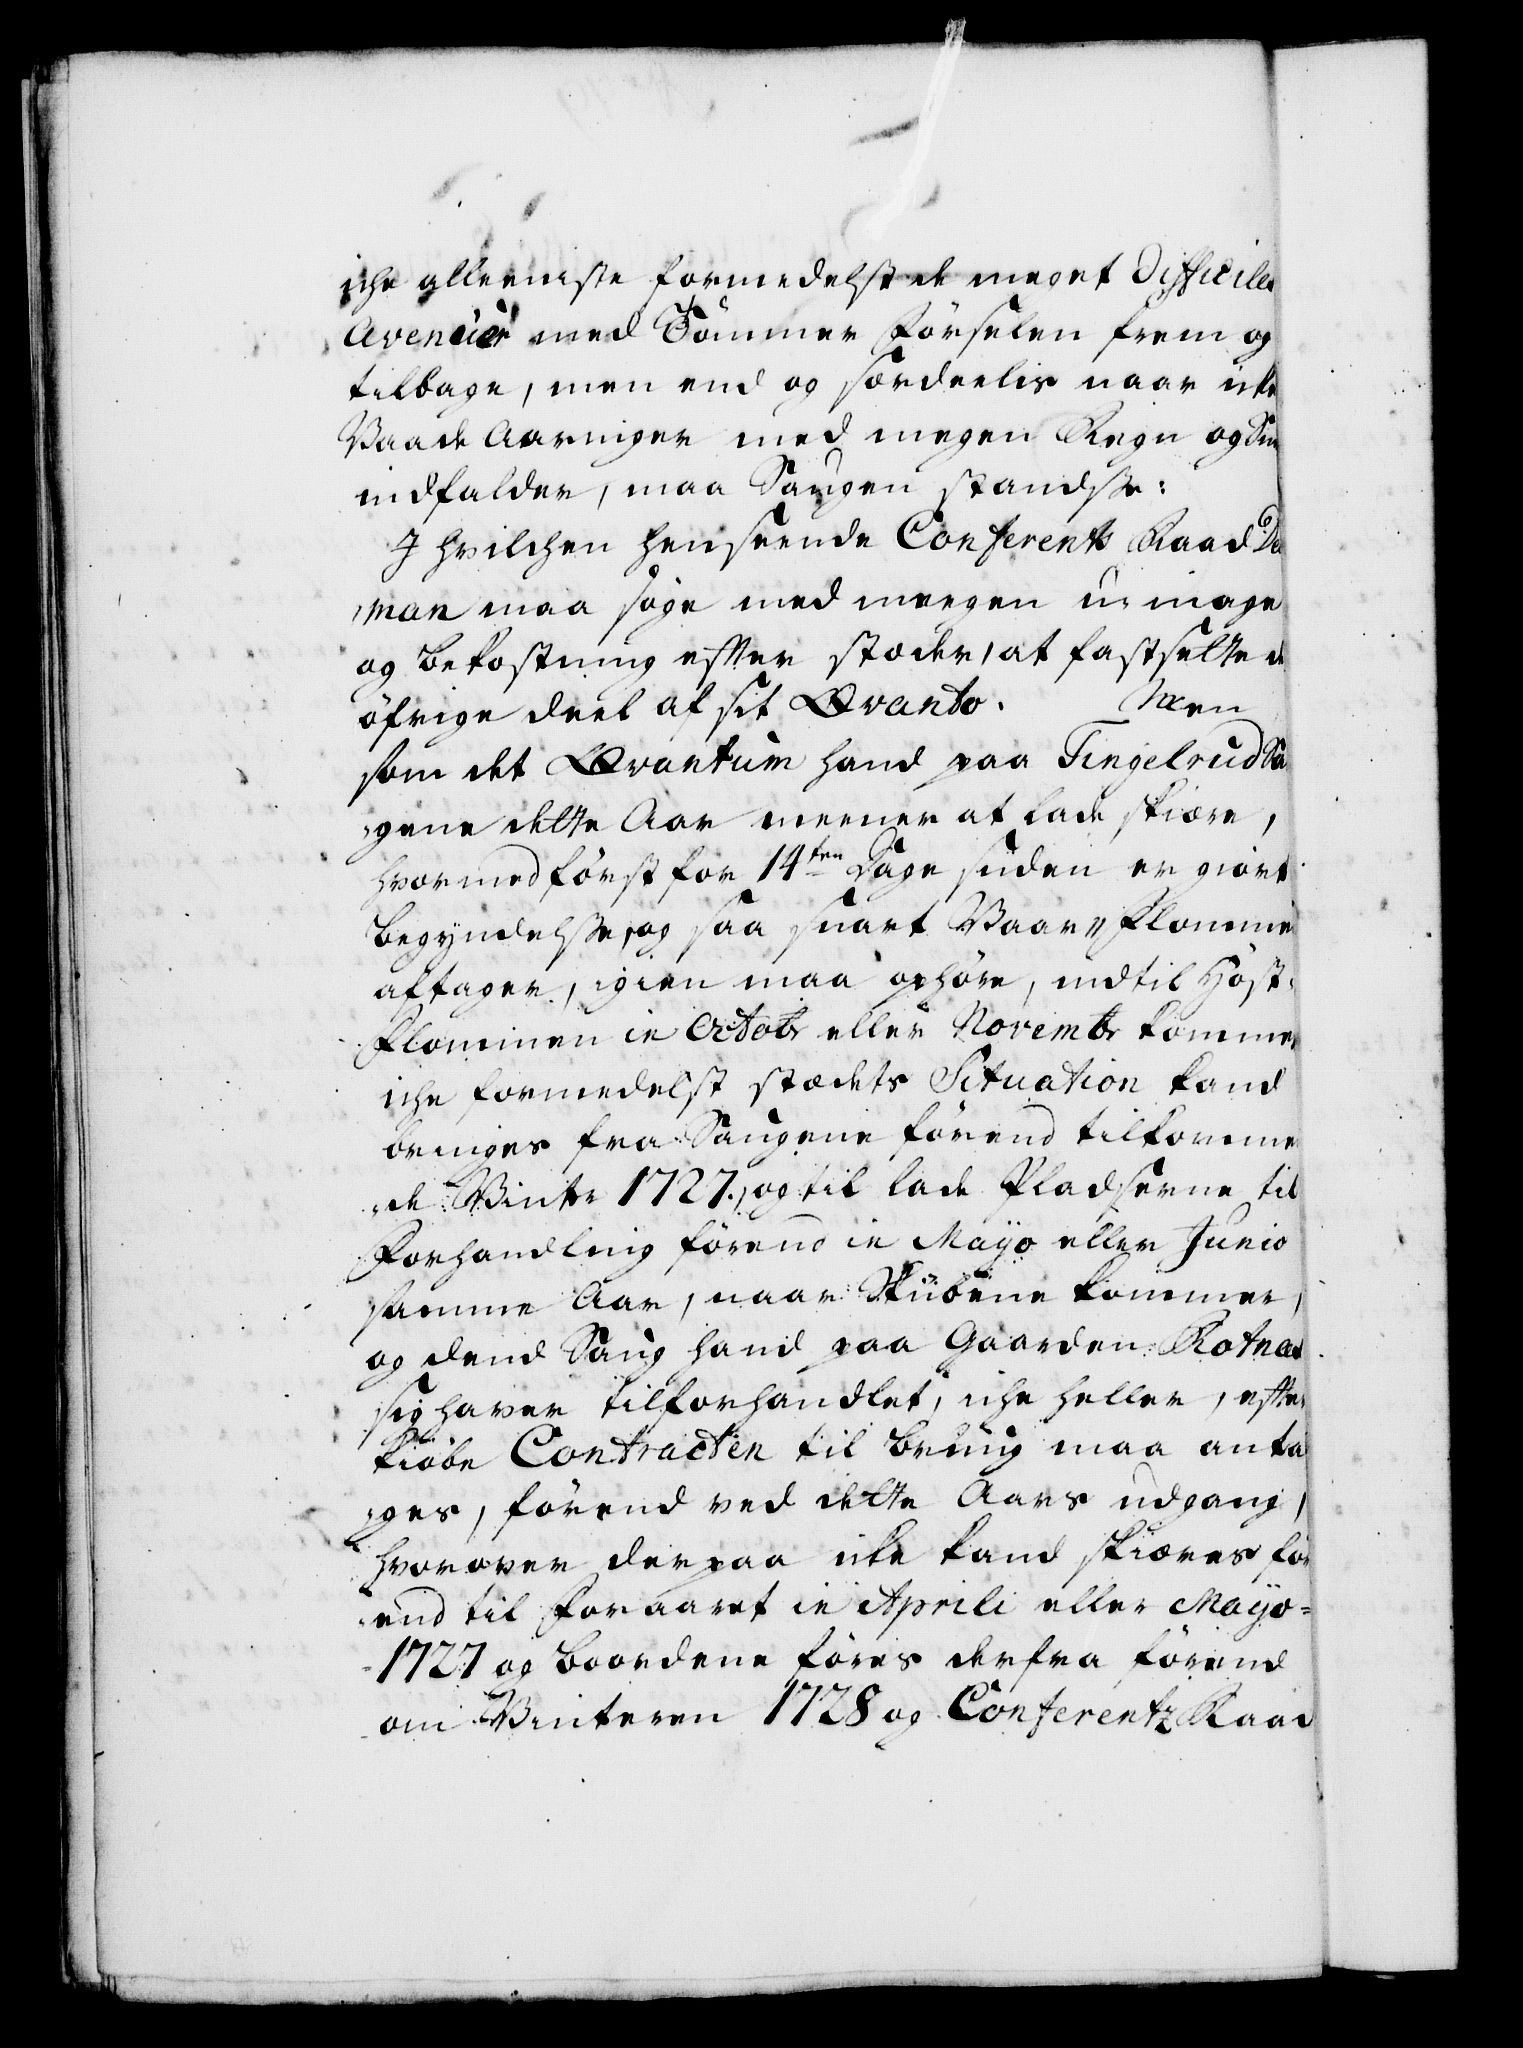 iche alleeniste formedelst de meget Difficile
Avenuer med Tömmer Förselen frem og
tilbage, men end og særdeelis naar icke
Vaade Aaringer med megen Regn og
indfalder, maa Saugen standsse:
J hvilchen henseende Conferents Raad De
man maa söge med meegen u-mage
og bekostning effter stæder, at fastsette de
öfrige deel af sit Qvanto. Men
som det Qvantum hand paa Fingelrud Sau
gene dette Aar meener at lade skiære,
hvormed först for 14ten Dage siiden er giort
begyndelsse, og saa snart Vaar Flommen
aftager, igien maa ophöre, indtil Höst-
Flommen in Octobr eller Novembr kommer
iche formedelst stædets Situation kand
bringes fra Saugene förend tilkommen
de Vinter 1727., og til lade Pladserne til
Forhandling förend in Mayo eller Junio
samme Aar, naar Skibene kommer,
og dend Saug hand paa Gaarden Rotnæs
sig haver tilforhandlet, iche heller, effter
Kiöbe Contracten til brug maa anta
ges, förend ved dette Aars udgang,
hvorover derpaa icke kand skiæres för
end til Foraaret in Aprili eller Mayo
1727 og boordene föres derfra förend
om Vinteren 1728 og Conferentz Raad